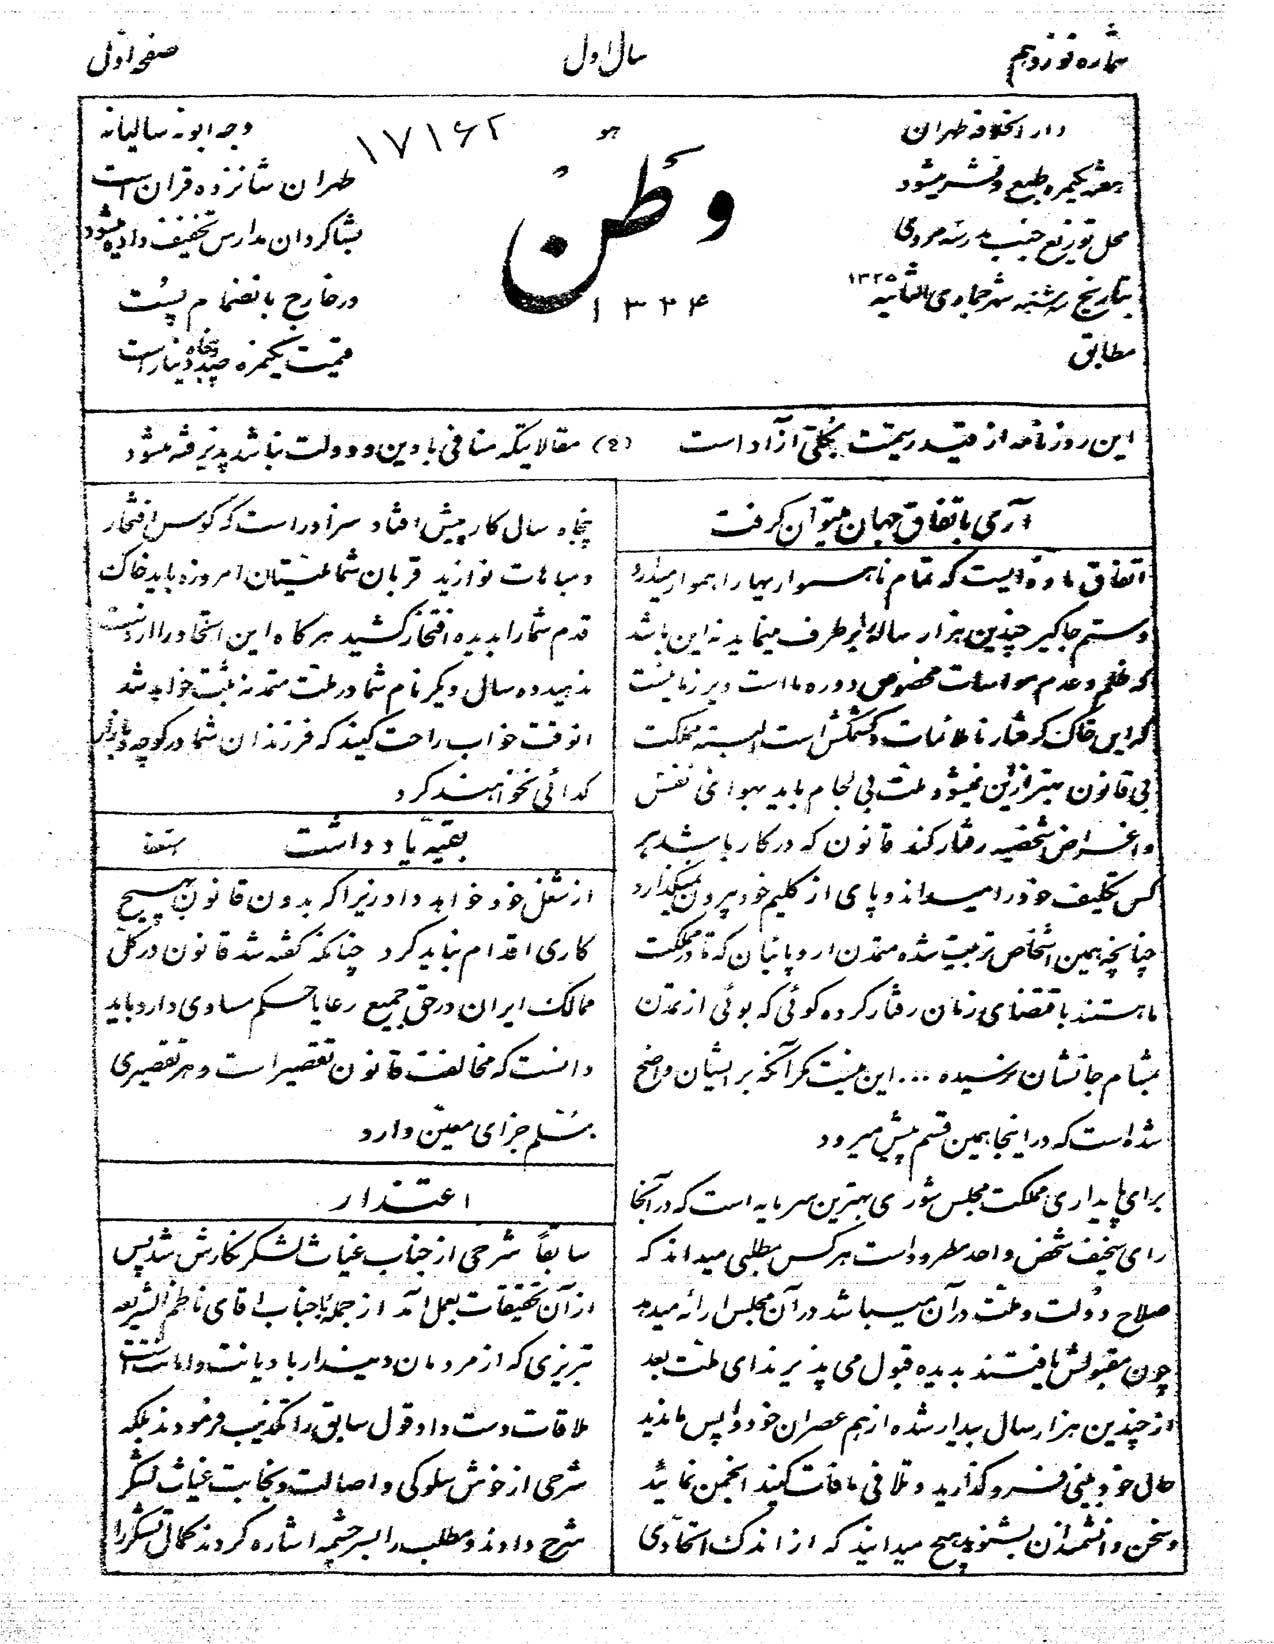 شماره نوزدهم
سال اول
صفحه اولی
دار الخلافه طهران
هفته یکنمره طبع و نشر میشود
محل توزیع جنب مدرسه مروی
بتاریخ سه شنبه شهر جمادی الثانیه ۱۳۲۵
مطابق
هو
۱۷۱۶۲
وطن
۱۳۲۴
وجه ابونه سالیانه
طهران شانزده قران است
بشاگردان مدارس تخفیف داده میشود
در خارج بانضمام پست
قیمت یکنمره صد و پنجاه دینار است
این روزنامه از قید رسمیت بکلی آزاد است (٤) مقالاتیکه منافی با دین و دولت نباشد پذیرفته میشود
آری باتفاق جهان میتوان گرفت
اتفاق ماده ایست که تمام ناهمواریها را هموار میدارد
و ستم جاگیر چندین هزار ساله را برطرف مینماید نه این باشد
که ظلم و عدم مواسات مخصوص دوره ما است و بر زمانیست
که این خاک گرفتار ناملائمات و کشمکش است البته مملکت
بی قانون بهتر ازین نمیشود ملت بی لجام باید بهوای نفس
و اغراض شخصیه رفتار کند قانون که در کار باشد هر
کس تکلیف خود را میداند و پای از گلیم خود بیرون نمیگذارد
چنانچه همین اشخاص تربیت شده متمدن اروپائیان که تا در مملکت
ما هستند باقتضای زمان رفتار کرده گوئی که بوئی از تمدن
بمشام جانشان نرسیده ... این نیست مگر آنکه بر ایشان واضح
شده است که در اینجا همین قسم پیش میرود
برای پایداری مملکت مجلس شوری بهترین سرمایه است که در آنجا
رای سخیف شخص واحد مطرود است هر کس مطلبی میداند که
صلاح دولت و ملت در آن میباشد در آن مجلس ارائه میدهد
چون مقبولش یافتند بدیده قبول می پذیرند ای ملت بعد
از چندین هزار سال بیدار شده از هم عصران خود واپس ماندید
حالی خودبینی فرو گذارید و تلافی مافات کنید انجمن نمائید
و سخن دانشمندان بشنوید هیچ میدانید که از اندک اتحادی
پنجاه سال کار پیش افتاد سزاوار است که کوس افتخار
و مباهات نوازید قربان شما ملتیان امروزه باید خاک
قدم شما را بدیده افتخار کشید هرگاه این اتحاد را از دست
ندهید ده سال دیگر نام شما در ملت متمدنه ثبت خواهد شد
انوقت خواب راحت کنید که فرزندان شما در کوچه و بازار
گدائی نخواهند کرد
بقیه یادداشت
از شغل خود خواهد داد زیرا که بدون قانون بهیچ
کاری اقدام نباید کرد چنانکه گفته شد قانون در کلی
ممالک ایران در حق جمیع رعایا حکم مساوی دارد باید
دانست که مخالفت قانون تقصیر است و هر تقصیری
جزای معین دارد
اعتذار
سابقاً شرحی از جناب غیاث لشکر نگارش شد پس
از آن تحقیقات بعمل آمد از جمله با جناب اقای ناظم الشریعه
تبریزی که از مردمان دیندار با دیانت و امانت است
ملاقات دست داد قول سابق را تکذیب فرمودند بلکه
شرحی از خوش سلوکی و اصالت و نجابت غیاث لشکر
شرح دادند و مطلب را بسرچشمه اشاره کردند کمال تشکر را